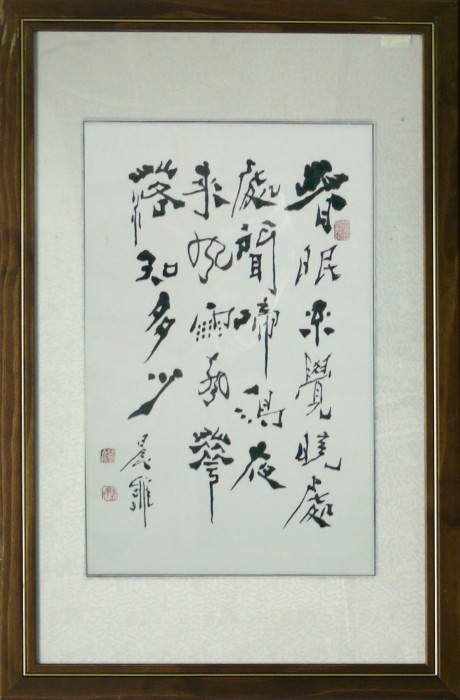 春眠不覺曉處
處聞啼鳥夜
來風雨聲華
落知多少
晨